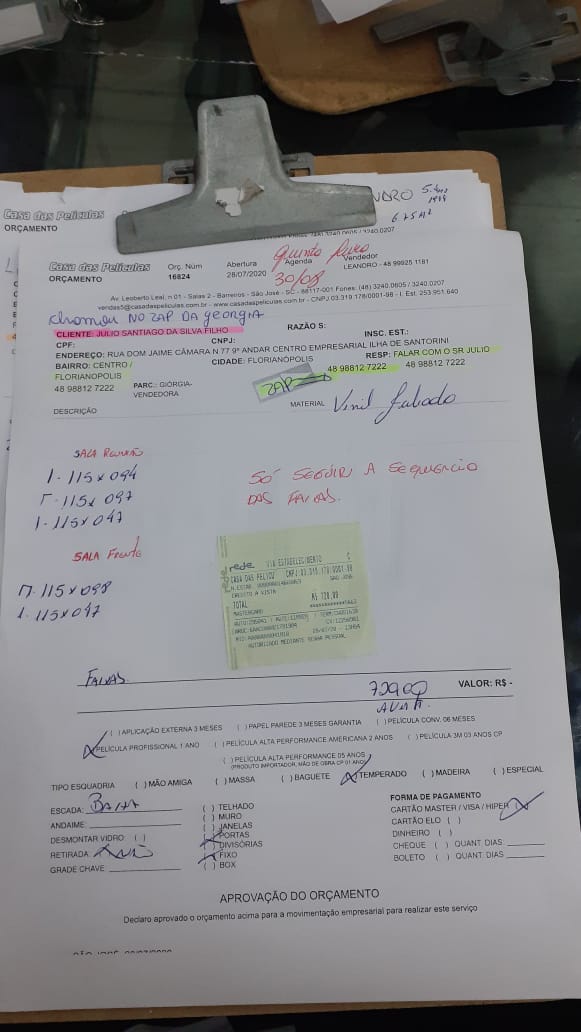 Casa das Películas
ORÇAMENTO
5.
6.75 M²
Casa das Películas
ORÇAMENTO
Orç. Núm
16824
Abertura
28/07/2020
Agenda
Quinta feira
30/08
Vendedor
LEANDRO - 48 99925 1181
Av. Leoberto Leal, n 01 - Salas 2 - Barreiros - São José - SC - 88117-001 Fones: (48) 3240.0605 / 3240.0207
vendas5@casadaspeliculas.com.br - www.casadaspeliculas.com.br - CNPJ 03.319.178/0001-98 - I. Est. 253.951.640
chamou NO ZAP DA georgia
CLIENTE: JULIO SANTIAGO DA SILVA FILHO
RAZÃO S:
CPF:
CNPJ:
INSC. EST.:
ENDEREÇO: RUA DOM JAIME CÂMARA N 77 9º ANDAR CENTRO EMPRESARIAL ILHA DE SANTORINI
BAIRRO: CENTRO /
FLORIANÓPOLIS
CIDADE: FLORIANÓPOLIS
RESP: FALAR COM O SR JULIO
48 98812 7222
48 98812 7222
48 98812 7222
PARC.: GIÓRGIA-
VENDEDORA
ZAP
DESCRIÇÃO
MATERIAL
Vinil Jateado
SALA Reunião
1 - 115x094
115x097
1 - 115x047
SÓ SEGUIR A SEQUENCIA
DAS FAIXAS.
SALA Frente
115x098
1 - 115x047
rede
VIA ESTABELECIMENTO
CASA DAS PELICU
CREDITO A VISTA
TOTAL
R$ 720,00
MASTERCARD
AUTORIZADO MEDIANTE SENHA PESSOAL
FAIXAS
720,00
VALOR: R$ -
( ) APLICAÇÃO EXTERNA 3 MESES ( ) PAPEL PAREDE 3 MESES GARANTIA ( ) PELÍCULA CONV. 06 MESES
(X) PELÍCULA PROFISSIONAL 1 ANO ( ) PELÍCULA ALTA PERFORMANCE AMERICANA 2 ANOS ( ) PELÍCULA 3M 03 ANOS CP
( ) PELÍCULA ALTA PERFORMANCE 05 ANOS
(PRODUTO IMPORTADOR, MÃO DE OBRA CP 01 ANO)
TIPO ESQUADRIA ( ) MÃO AMIGA ( ) MASSA ( ) BAGUETE (X) TEMPERADO ( ) MADEIRA ( ) ESPECIAL
ESCADA: BAIXA
ANDAIME:
DESMONTAR VIDRO: ( )
RETIRADA: NÃO
GRADE CHAVE
( ) TELHADO
( ) MURO
( ) JANELAS
(X) PORTAS
( ) DIVISÓRIAS
(X) FIXO
( ) BOX
FORMA DE PAGAMENTO
CARTÃO MASTER / VISA / HIPER (X)
CARTÃO ELO ( )
DINHEIRO ( )
CHEQUE ( ) QUANT. DIAS
BOLETO ( ) QUANT. DIAS
APROVAÇÃO DO ORÇAMENTO
Declaro aprovado o orçamento acima para a movimentação empresarial para realizar este serviço